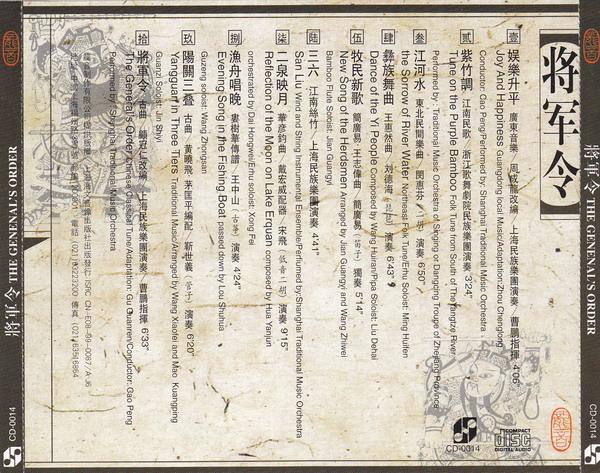 将军令
壹 娛樂升平 廣東音樂／周成龍改編／上海民族樂團演奏／曹鵬指揮 4'06"
Joy And Happiness Guangdong local Music/Adaptation:Zhou Chenglong
Conductor: Gao Peng/Performed by: Shanghai Traditional Music Orchestra
貳 紫竹調 江南民歌／浙江歌舞劇院民族樂團演奏 3'24"
Tune on the Purple Bamboo Folk Tune from South of the Yangtze River
Performed by: Traditional Music Orchestra of Singing or Dangcing Trouge of Zhejiang Province
叁 江河水 東北民間樂曲／閔惠芬（二胡）演奏 6'50"
the Sorrow of River Water Northeast Folk Tune/Erhu Soloist: Ming Huifen
肆 彝族舞曲 王惠然曲／刘德海（琵琶）演奏 6'43"
Dance of the Yi People Composed by Wang Huiran/Pipa Soloist: Liu Dehai
伍 牧民新歌 簡廣易／王志偉曲／簡廣易（笛子）獨奏 5'14"
New Song of the Herdsmen Arranged by Jian Guangyi and Wang Zhiwei
Bamboo Flute Soloist: Jian Guangyi
陸 三六 江南絲竹／上海民族樂團演奏 4'41"
San Liu Wind and String Instrumental Ensemble/Perfiumed by Shanghai Traditional Music Orchestra
柒 二泉映月 華彥鈞曲／戴宏威配器／宋飛（低音二胡）演奏 9'15"
Reflection of the Moon on Lake Erquan composed by Hua Yanjun
orchestrated by Dai Hongwei/Erhu soloist: Xong Fei
捌 漁舟唱晚 婁樹華傳譜／王中山（古箏）演奏 4'24"
Evening Song in the Fishing Boat passed down by Lou Shuhua
Guzeng soloist: Wang Zhongsan
玖 陽關三叠 古曲／黃曉飛／茅匡平編配／靳世義（管子）演奏 6'20"
Yangguan in Three Tiers Traditional Music/Arranged by Wang Xiaofei and Mao Kuangping
Guanzi Soloist: Jin Shiyi
拾 將軍令 古曲／顧冠仁改編／上海民族樂團演奏／曹鵬指揮 6'33"
The General's Order Chinese Classical Tune/Adaptation: Gu Guanren/Conductor: Gao Peng
Performed by: Shanghai Traditional Music Orchestra
上海 出版社出版發行 ISRC CN-E08-99-0087/A·J6
電話 (021) 傳真
CD-0014
COMPACT
disc
DIGITAL AUDIO
將軍令 THE GENENAL'S ORDER
CD-0014
將軍令 THE GENENAL'S ORDER
CD-0014